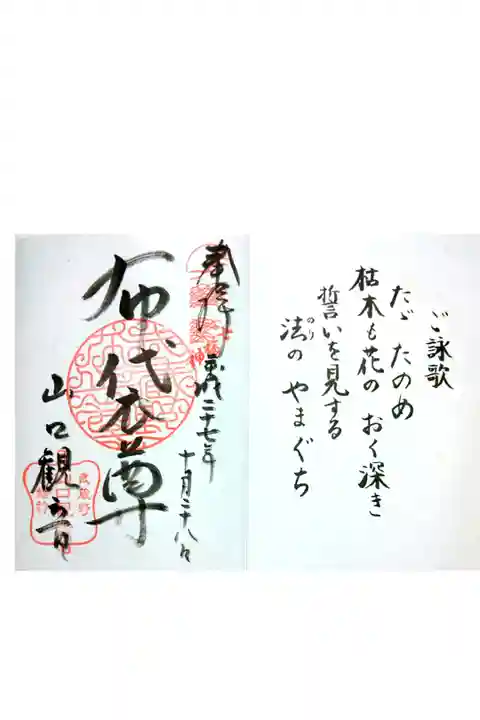 ご詠歌
たゞ たのめ
枯木も花の おく深き
誓いを見する
法(のり)の やまぐち
奉拝
平成二十七年
十月二十八日
布袋尊
山口観音
武蔵野